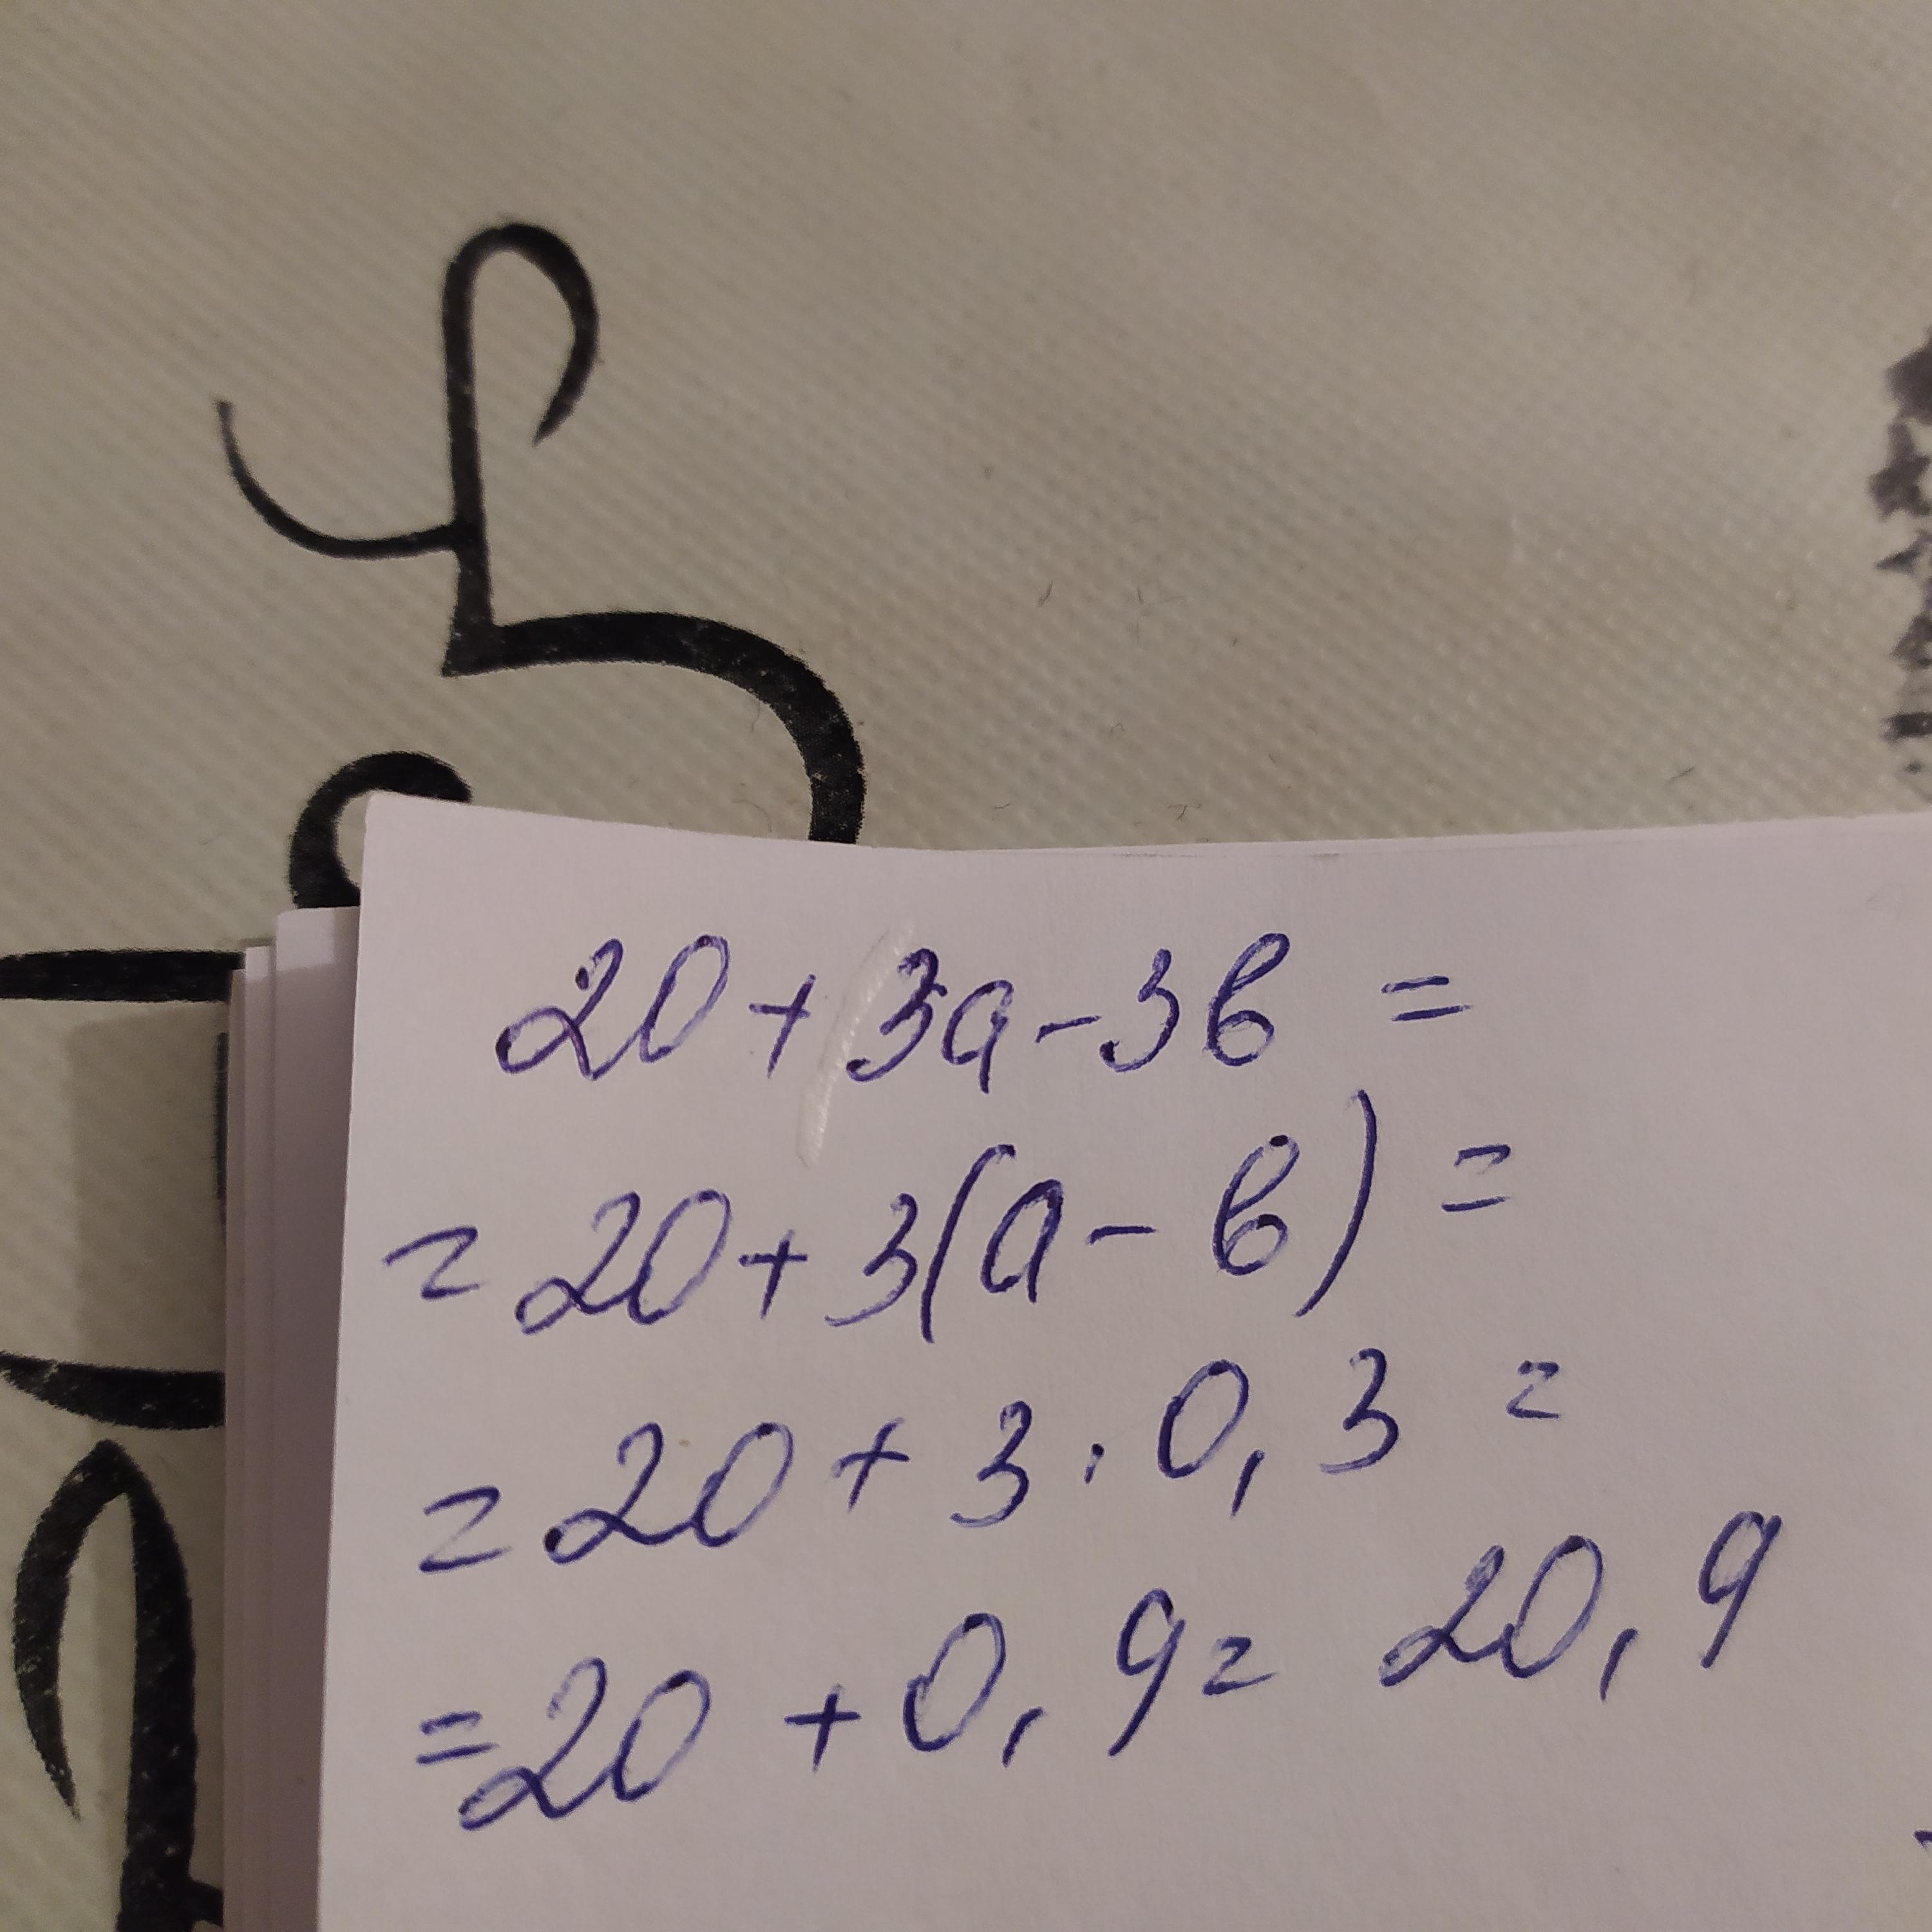 20+3a-3b=
=20+3(a-b)=
=20+3·0,3=
=20+0,9=20,9